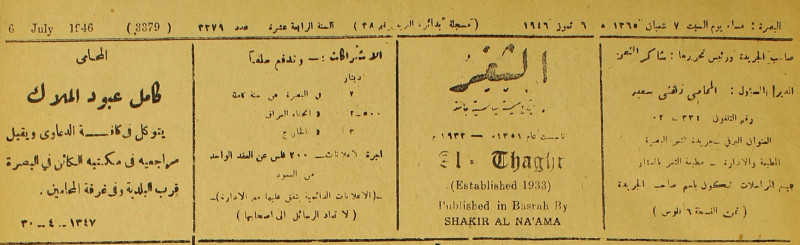 البصرة : مساء يوم السبت ٧ شعبان ١٣٦٥ ٥ ٦ تموز ١٩٤٦ (مسجلة بدائرة البريد برقم ٣٨) السنة الرابعة عشرة عدد ٣٣٧٩ (3379) 6 July 1946
صاحب الجريدة ورئيس تحريرها : شاكر النعمة
المدير المسؤول : المحامي زهني سعيد
رقم التلفون ٣٣٤ - ٠٢
العنوان البرقي - جريدة الثغر البصرة
المطبعة والادارة - مطبعة الثغر بالعشار
جميع المراسلات تكون باسم صاحب الجريدة
( ثمن النسخة ٦ فلوس )
الثغر
جريدة يومية سياسية جامعة
تأسست عام ١٣٥١ هـ — ١٩٣٣ م
El - Thaghr
(Established 1933)
Published in Basrah By
SHAKIR AL NA'AMA
الاشتراكات : — وتدفع سلفاً
دينار
٢ في البصرة عن سنة كاملة
٢-٥٠٠ في انحاء العراق
٣ في الخارج
اجرة الاعلانات — ٢٠٠ فلس عن العقد الواحد
من العمود
-(الاعلانات الدائمية يتفق عليها مع الادارة)-
( لا تعاد الرسائل الى اصحابها )
المحامي
كامل عبود الملاك
يتوكل في كافة الدعاوى ويقبل
مراجعيه في مكتبه الكائن في البصرة
قرب البلدية وفي غرفة المحامين .
٣٠ - ٤ - ١٣٤٧